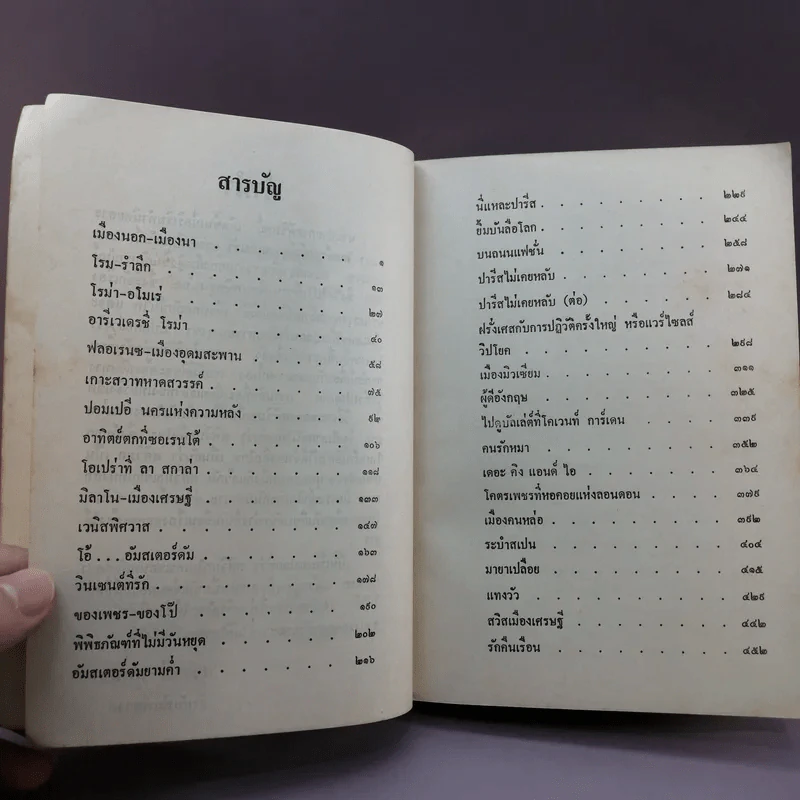 สารบัญ
เมืองนอก-เมืองนา . . . . . . ๑
โรม-รำลึก . . . . . . . ๑๓
โรม่า-อโมเร่ . . . . . . . ๒๗
อารีเวเดรชี่ โรม่า . . . . . . ๔๐
ฟลอเรนซ-เมืองอุดมสะพาน . . . . ๕๘
เกาะสวาทหาดสวรรค์ . . . . . ๗๕
ปอมเปอี นครแห่งความหลัง . . . . ๙๒
อาทิตย์ตกที่ซอเรนโต้ . . . . . ๑๐๖
โอเปร่าที่ ลา สกาล่า . . . . . ๑๑๘
มิลาโน-เมืองเศรษฐี . . . . . ๑๓๓
เวนิสพิศวาส . . . . . . . ๑๔๗
โอ้ . . . อัมสเตอร์ดัม . . . . . ๑๖๓
วินเซนต์ที่รัก . . . . . . . ๑๗๘
ของเพชร-ของโป๊ . . . . . . ๑๙๐
พิพิธภัณฑ์ที่ไม่มีวันหยุด . . . . . ๒๐๒
อัมสเตอร์ดัมยามค่ำ . . . . . ๒๑๖
นี่แหละปารีส . . . . . . . ๒๒๙
ยิ้มบันลือโลก . . . . . . . ๒๔๔
บนถนนแฟชั่น . . . . . . . ๒๕๘
ปารีสไม่เคยหลับ . . . . . . ๒๗๑
ปารีสไม่เคยหลับ (ต่อ) . . . . . ๒๘๔
ฝรั่งเศสกับการปฏิวัติครั้งใหญ่ หรือแวร์ไซลส์
วิปโยค . . . . . . . . ๒๙๘
เมืองมิวเซียม . . . . . . . ๓๑๑
ผู้ดีอังกฤษ . . . . . . . ๓๒๕
ไปดูบัลเล่ต์ที่โคเวนท์ การ์เดน . . . . ๓๓๙
คนรักหมา . . . . . . . ๓๕๒
เดอะ คิง แอนด์ ไอ . . . . . ๓๖๔
โคตรเพชรที่หอคอยแห่งลอนดอน . . . . ๓๗๙
เมืองคนหล่อ . . . . . . . ๓๙๒
ระบำสเปน . . . . . . . ๔๐๔
มายาเปลือย . . . . . . . ๔๑๕
แทงวัว . . . . . . . . ๔๒๙
สวิสเมืองเศรษฐี . . . . . . ๔๔๒
รักคืนเรือน . . . . . . . ๔๕๒